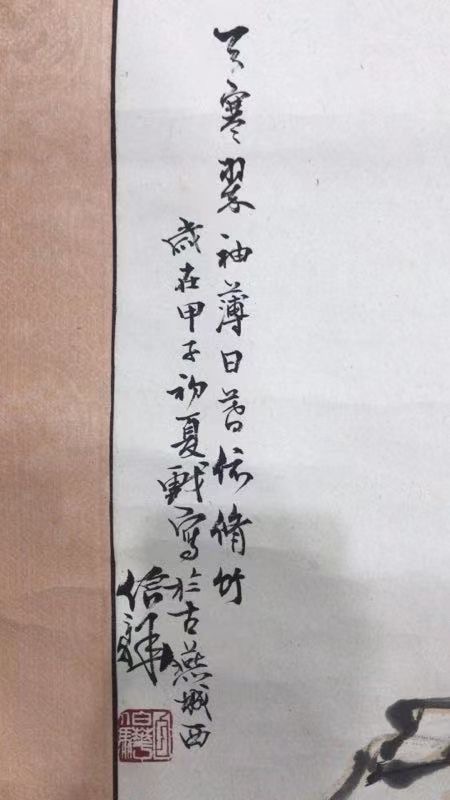 天寒翠袖薄日暮依脩竹
歲在甲子初夏戲寫於古燕城西